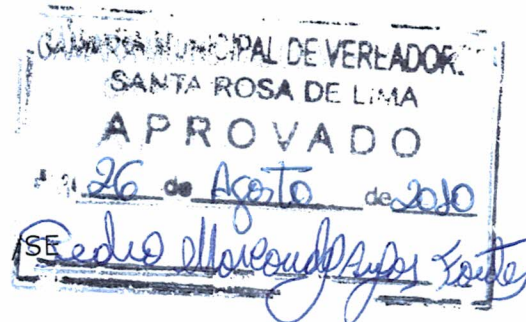 CÂMARA MUNICIPAL DE VEREADOR.
SANTA ROSA DE LIMA
APROVADO
26 de Agosto de 2010
/SE Pedro